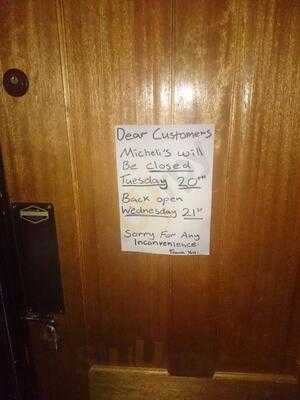 Dear Customers
Micheli's will
Be closed
Tuesday 20TH
Back open
Wednesday 21ST
Sorry For Any
Inconvenience
Thank You